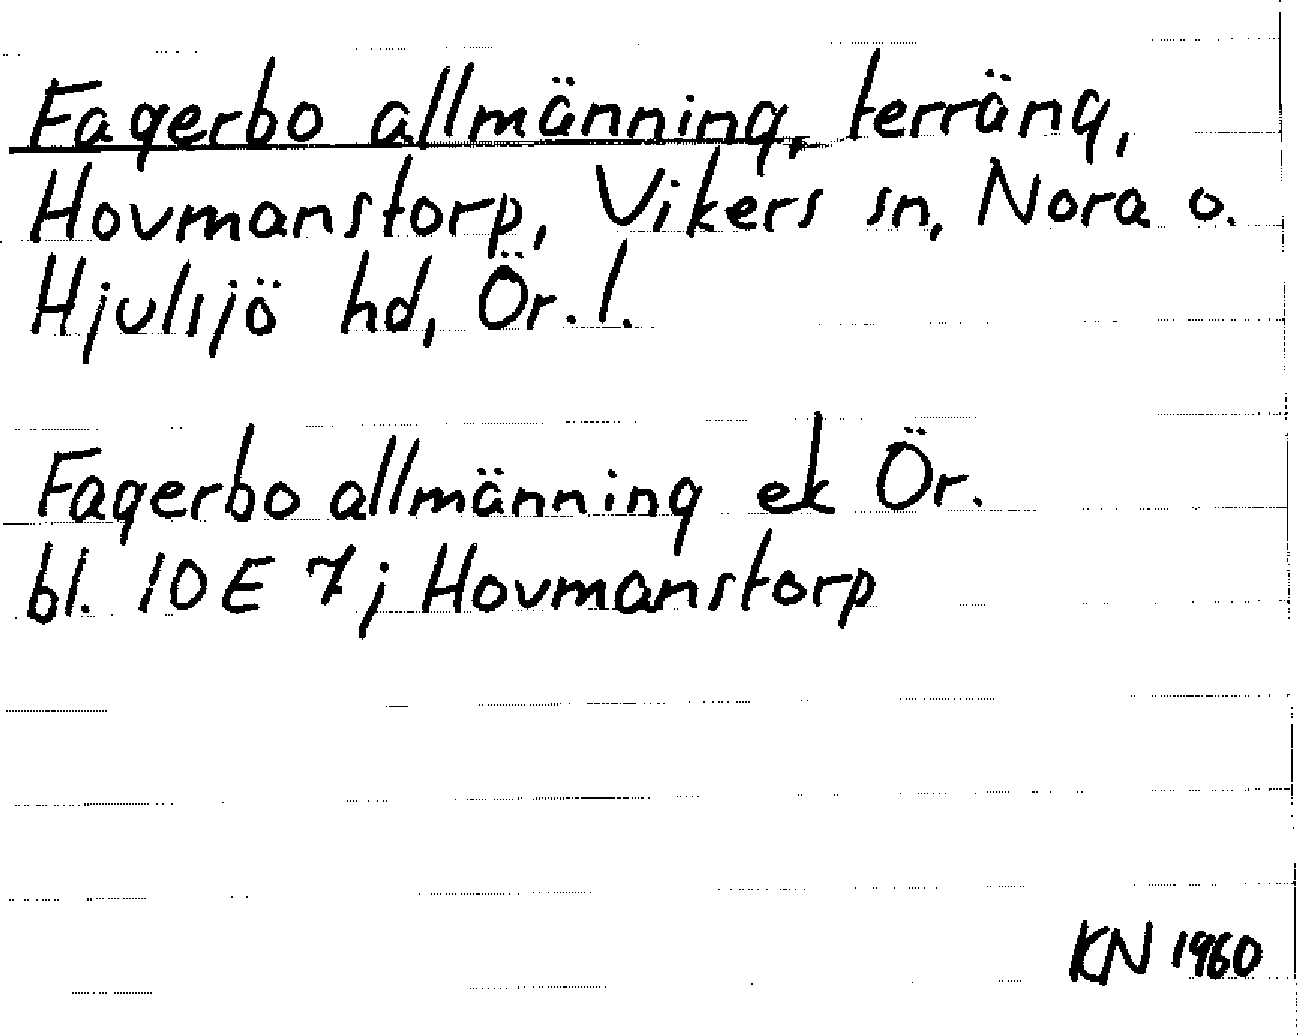 Fagerbo allmänning, terräng,
Hovmanstorp, Vikers sn, Nora o.
Hjulsjö hd, Ör. l.
Fagerbo allmänning ek Ör.
bl. 10E 7j Hovmanstorp
KN 1960